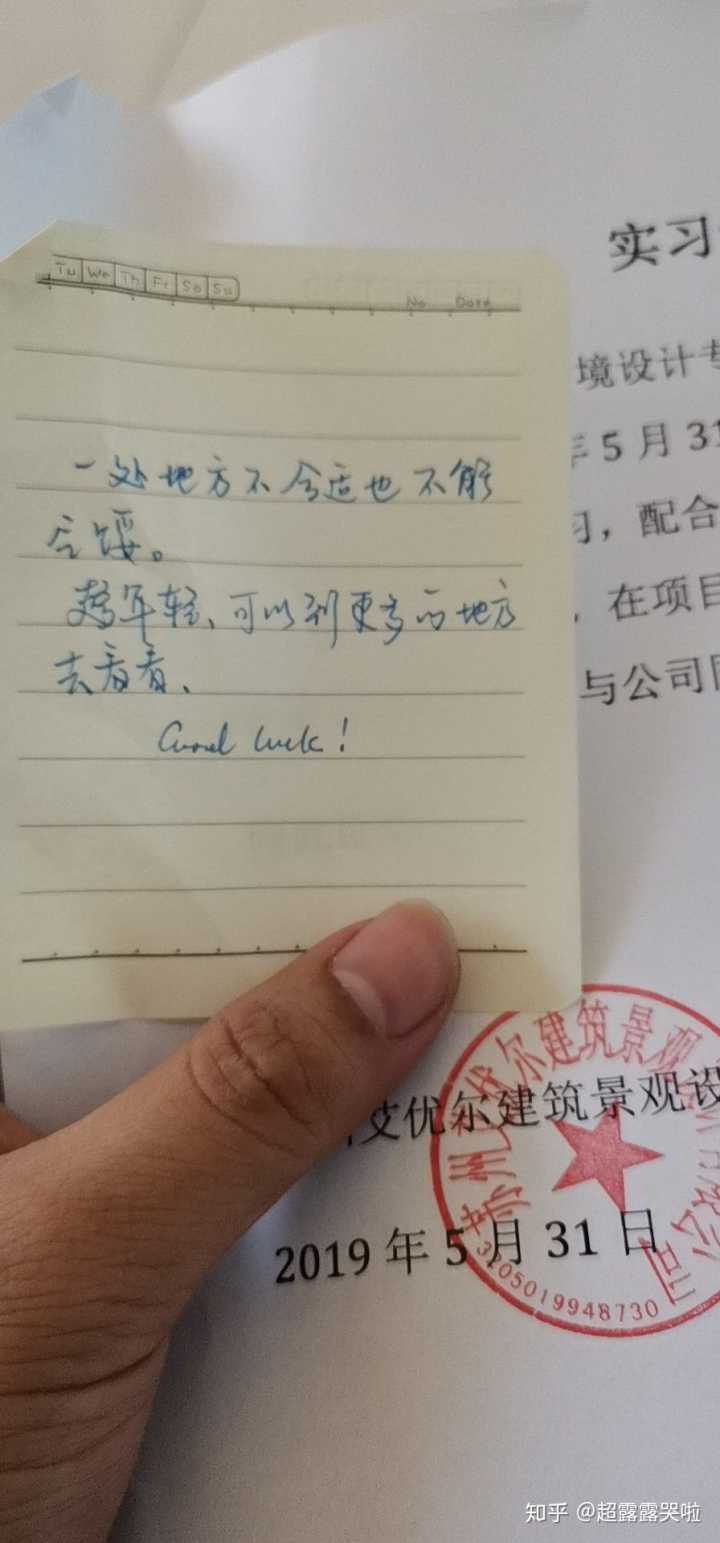 Tu We Th Fr Sa Su
No Date
一处地方不合适也不能
气馁。
趁年轻、可以到更多的地方
去看看、
Good luck!
实习
境设计专
年 5 月 31
习，配合
，在项目
与公司
艾优尔建筑景观设
2019 年 5 月 31 日
苏州艾优尔建筑景观
公司
3205019948730
知乎 @超露露哭啦